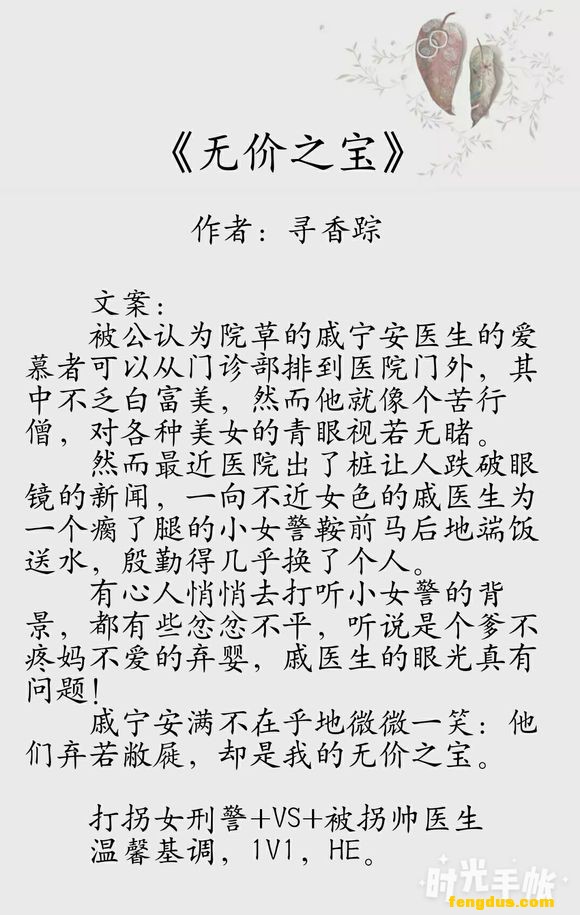 《无价之宝》
作者：寻香踪
文案：
被公认为院草的戚宁安医生的爱
慕者可以从门诊部排到医院门外，其
中不乏白富美，然而他就像个苦行
僧，对各种美女的青眼视若无睹。
然而最近医院出了桩让人跌破眼
镜的新闻，一向不近女色的戚医生为
一个瘸了腿的小女警鞍前马后地端饭
送水，殷勤得几乎换了个人。
有心人悄悄去打听小女警的背
景，都有些忿忿不平，听说是个爹不
疼妈不爱的弃婴，戚医生的眼光真有
问题！
戚宁安满不在乎地微微一笑：他
们弃若敝屣，却是我的无价之宝。
打拐女刑警+VS+被拐帅医生
温馨基调，1V1，HE。
时光手帐
fengdus.com